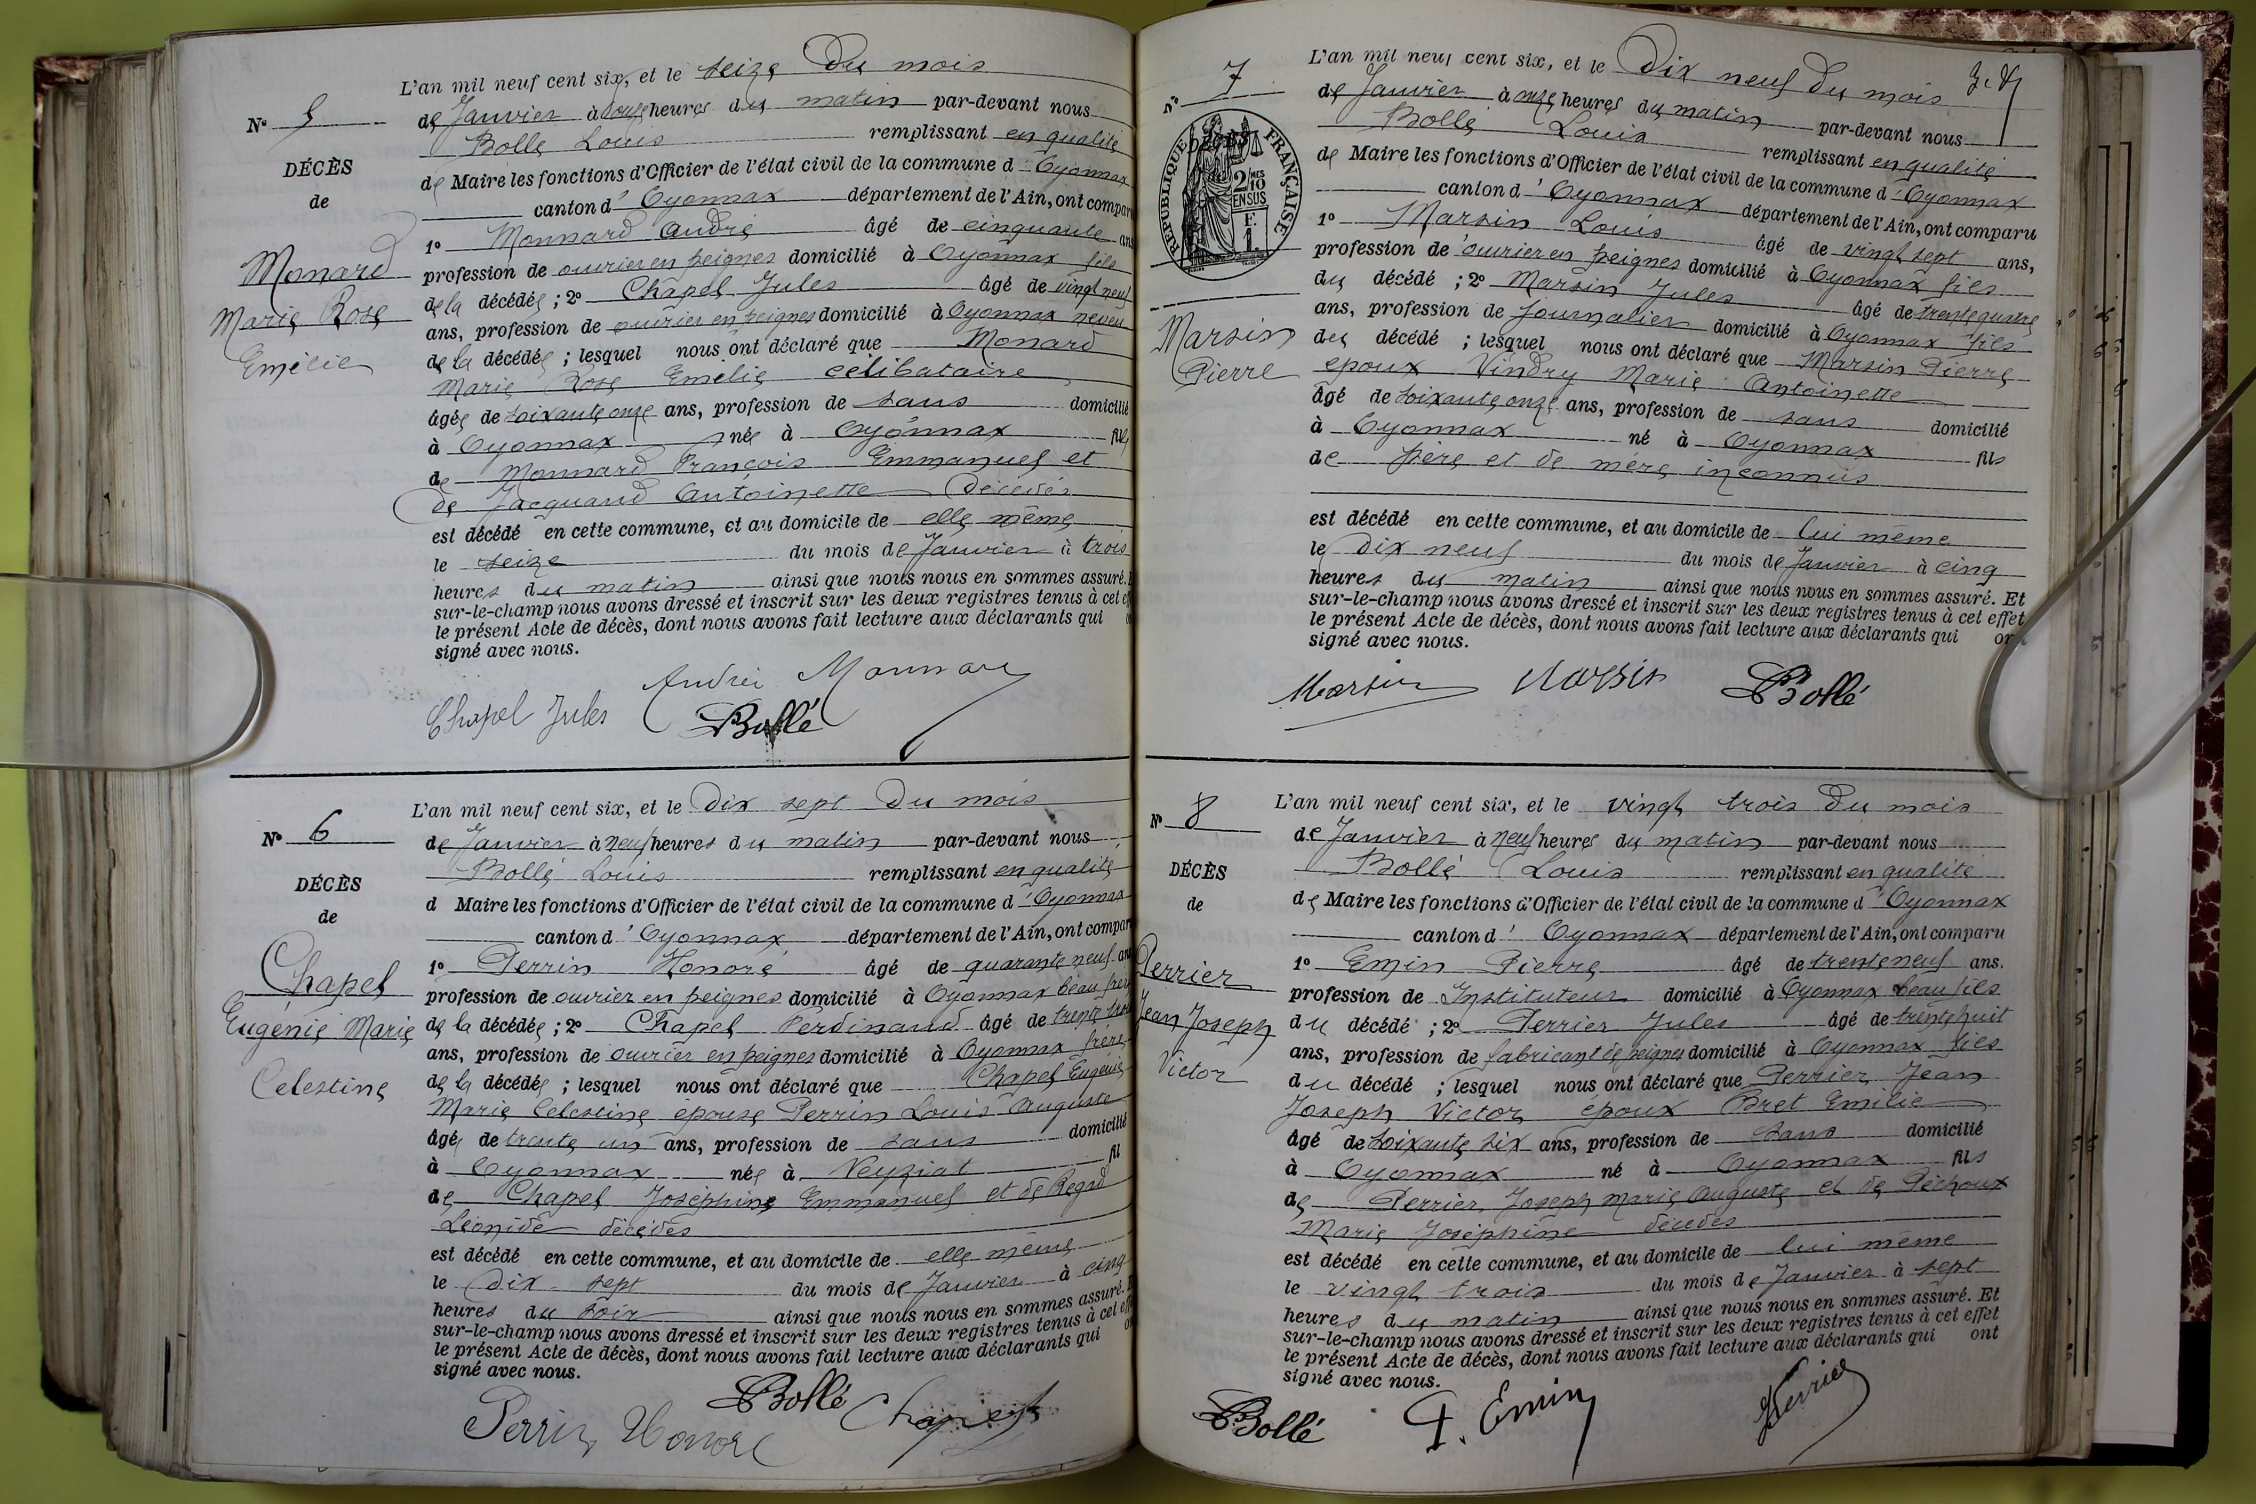 L'an mil neuf cent six, et le seize du mois
de Janvier à heures du matin par-devant nous
N° 5
Bollé Louis remplissant en qualité
DÉCÈS
de Maire les fonctions d'Officier de l'état civil de la commune d'Oyonnax
de
canton d'Oyonnax département de l'Ain, ont compar
1° Monnard André âgé de cinquante ans
Monard
profession de ouvrier en peignes domicilié à Oyonnax fils
de la décédée ; 2° Chapel Jules âgé de vingt neuf
Marie Rose
ans, profession de ouvrier en peignes domicilié à Oyonnax neveu
Emélie
de la décédée ; lesquel nous ont déclaré que Monard
Marie Rose Emélie célibataire
âgée de soixante onze ans, profession de sans domicilié
à Oyonnax née à Oyonnax fille
de Monnard François Emmanuel et
de Jacquand Antoinette décédés
est décédé en cette commune, et au domicile de elle même
le seize du mois de Janvier à trois
heures du matin ainsi que nous nous en sommes assuré.
sur-le-champ nous avons dressé et inscrit sur les deux registres tenus à cet eff
le présent Acte de décès, dont nous avons fait lecture aux déclarants qui
signé avec nous.
André Monnard
Chapel Jules Bollé
L'an mil neuf cent six, et le dix sept du mois
N° 6
de Janvier à neuf heures du matin par-devant nous
Bollé Louis remplissant en qualité
DÉCÈS
d Maire les fonctions d'Officier de l'état civil de la commune d'Oyonnax
de
canton d'Oyonnax département de l'Ain, ont compar
1° Perrin Honoré âgé de quarante neuf ans
Chapel
profession de ouvrier en peignes domicilié à Oyonnax beau frère
Eugénie Marie
de la décédée ; 2° Chapel Ferdinand âgé de trente
ans, profession de ouvrier en peignes domicilié à Oyonnax frère
Celestine
de la décédée ; lesquel nous ont déclaré que Chapel Eugénie
Marie Celestine épouse Perrin Louis Auguste
âgée de trente un ans, profession de sans domicilié
à Oyonnax née à Veyziat fil
de Chapel Joséphine Emmanuel et de Regad
Léonide décédés
est décédé en cette commune, et au domicile de elle même
le dix sept du mois de Janvier à cinq
heures du soir ainsi que nous nous en sommes assuré.
sur-le-champ nous avons dressé et inscrit sur les deux registres tenus à cet effe
le présent Acte de décès, dont nous avons fait lecture aux déclarants qui
signé avec nous.
Bollé Chapel
Perrin Honoré
L'an mil neuf cent six, et le dix neuf du mois
N° 7
de Janvier à onze heures du matin par-devant nous
Bollé Louis remplissant en qualité
RÉPUBLIQUE FRANÇAISE
2/10 MES
EN SUS
F. 1.
DÉCÈS
de Maire les fonctions d'Officier de l'état civil de la commune d'Oyonnax
canton d'Oyonnax département de l'Ain, ont comparu
1° Marsin Louis âgé de vingt sept ans,
profession de ouvrier en peignes domicilié à Oyonnax fils
du décédé ; 2° Marsin Jules âgé de trente quatre
Marsin
ans, profession de journalier domicilié à Oyonnax fils
Pierre
du décédé ; lesquel nous ont déclaré que Marsin Pierre
époux Vindry Marie Antoinette
âgé de soixante onze ans, profession de sans domicilié
à Oyonnax né à Oyonnax fils
de père et de mère inconnus
est décédé en cette commune, et au domicile de lui même
le dix neuf du mois de Janvier à cinq
heures du matin ainsi que nous nous en sommes assuré. Et
sur-le-champ nous avons dressé et inscrit sur les deux registres tenus à cet effet
le présent Acte de décès, dont nous avons fait lecture aux déclarants qui ont
signé avec nous.
Marsin Marsin Bollé
L'an mil neuf cent six, et le vingt trois du mois
N° 8
de Janvier à neuf heures du matin par-devant nous
Bollé Louis remplissant en qualité
DÉCÈS
de Maire les fonctions d'Officier de l'état civil de la commune d'Oyonnax
de
canton d'Oyonnax département de l'Ain, ont comparu
1° Emin Pierre âgé de trente neuf ans.
Perrier
profession de Instituteur domicilié à Oyonnax beau fils
Jean Joseph
du décédé ; 2° Perrier Jules âgé de trente huit
ans, profession de fabricant de peignes domicilié à Oyonnax fils
Victor
du décédé ; lesquel nous ont déclaré que Perrier Jean
Joseph Victor époux Bret Emilie
âgé de soixante six ans, profession de sans domicilié
à Oyonnax né à Oyonnax fils
de Perrier Joseph Marie Auguste et de Péchoux
Marie Joséphine décédés
est décédé en cette commune, et au domicile de lui même
le vingt trois du mois de Janvier à sept
heures du matin ainsi que nous nous en sommes assuré. Et
sur-le-champ nous avons dressé et inscrit sur les deux registres tenus à cet effet
le présent Acte de décès, dont nous avons fait lecture aux déclarants qui ont
signé avec nous.
Bollé P. Emin J Perrier